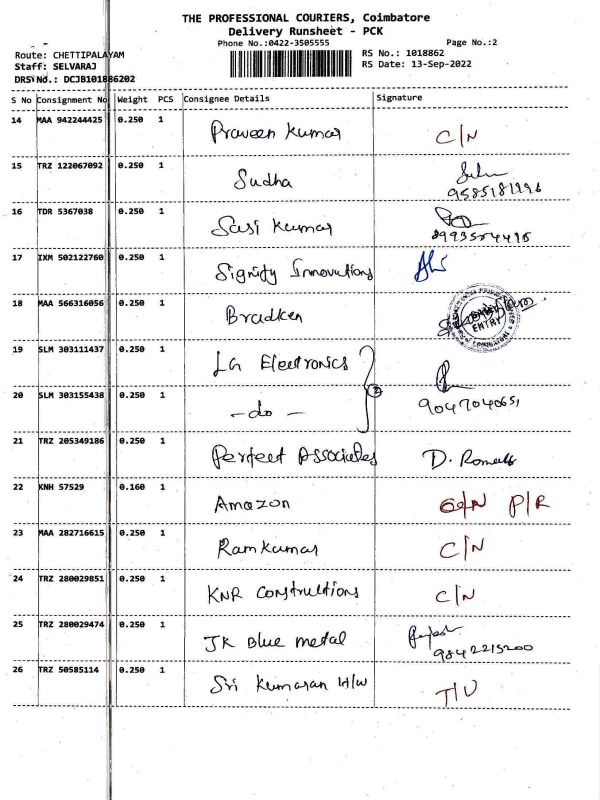 THE PROFESSIONAL COURIERS, Coimbatore
Delivery Runsheet - PCK
Phone No.:0422-3505555 Page No.:2
Route: CHETTIPALAYAM RS No.: 1018862
Staff: SELVARAJ RS Date: 13-Sep-2022
DRS No.: DCJB101886202
S No Consignment No Weight PCS Consignee Details Signature
14 MAA 942244425 0.250 1 Praveen Kumar C/N
15 TRZ 122067092 0.250 1 Sudha
16 TDR 5367038 0.250 1 Sasi Kumar
17 IXM 502122760 0.250 1 Signify Innovations
18 MAA 566316056 0.250 1 Bradken ENTRY
19 SLM 303111437 0.250 1 LG Electronics
20 SLM 303155438 0.250 1 -do- 2 9047040651
21 TRZ 205349186 0.250 1 Perfect Associates D.
22 KNH 57529 0.160 1 Amazon P/R
23 MAA 282716615 0.250 1 Ramkumar C/N
24 TRZ 280029851 0.250 1 KNR Constructions C/N
25 TRZ 280029474 0.250 1 JK Blue metal 9842215200
26 TRZ 50585114 0.250 1 Sri Kumaran H/W T/U